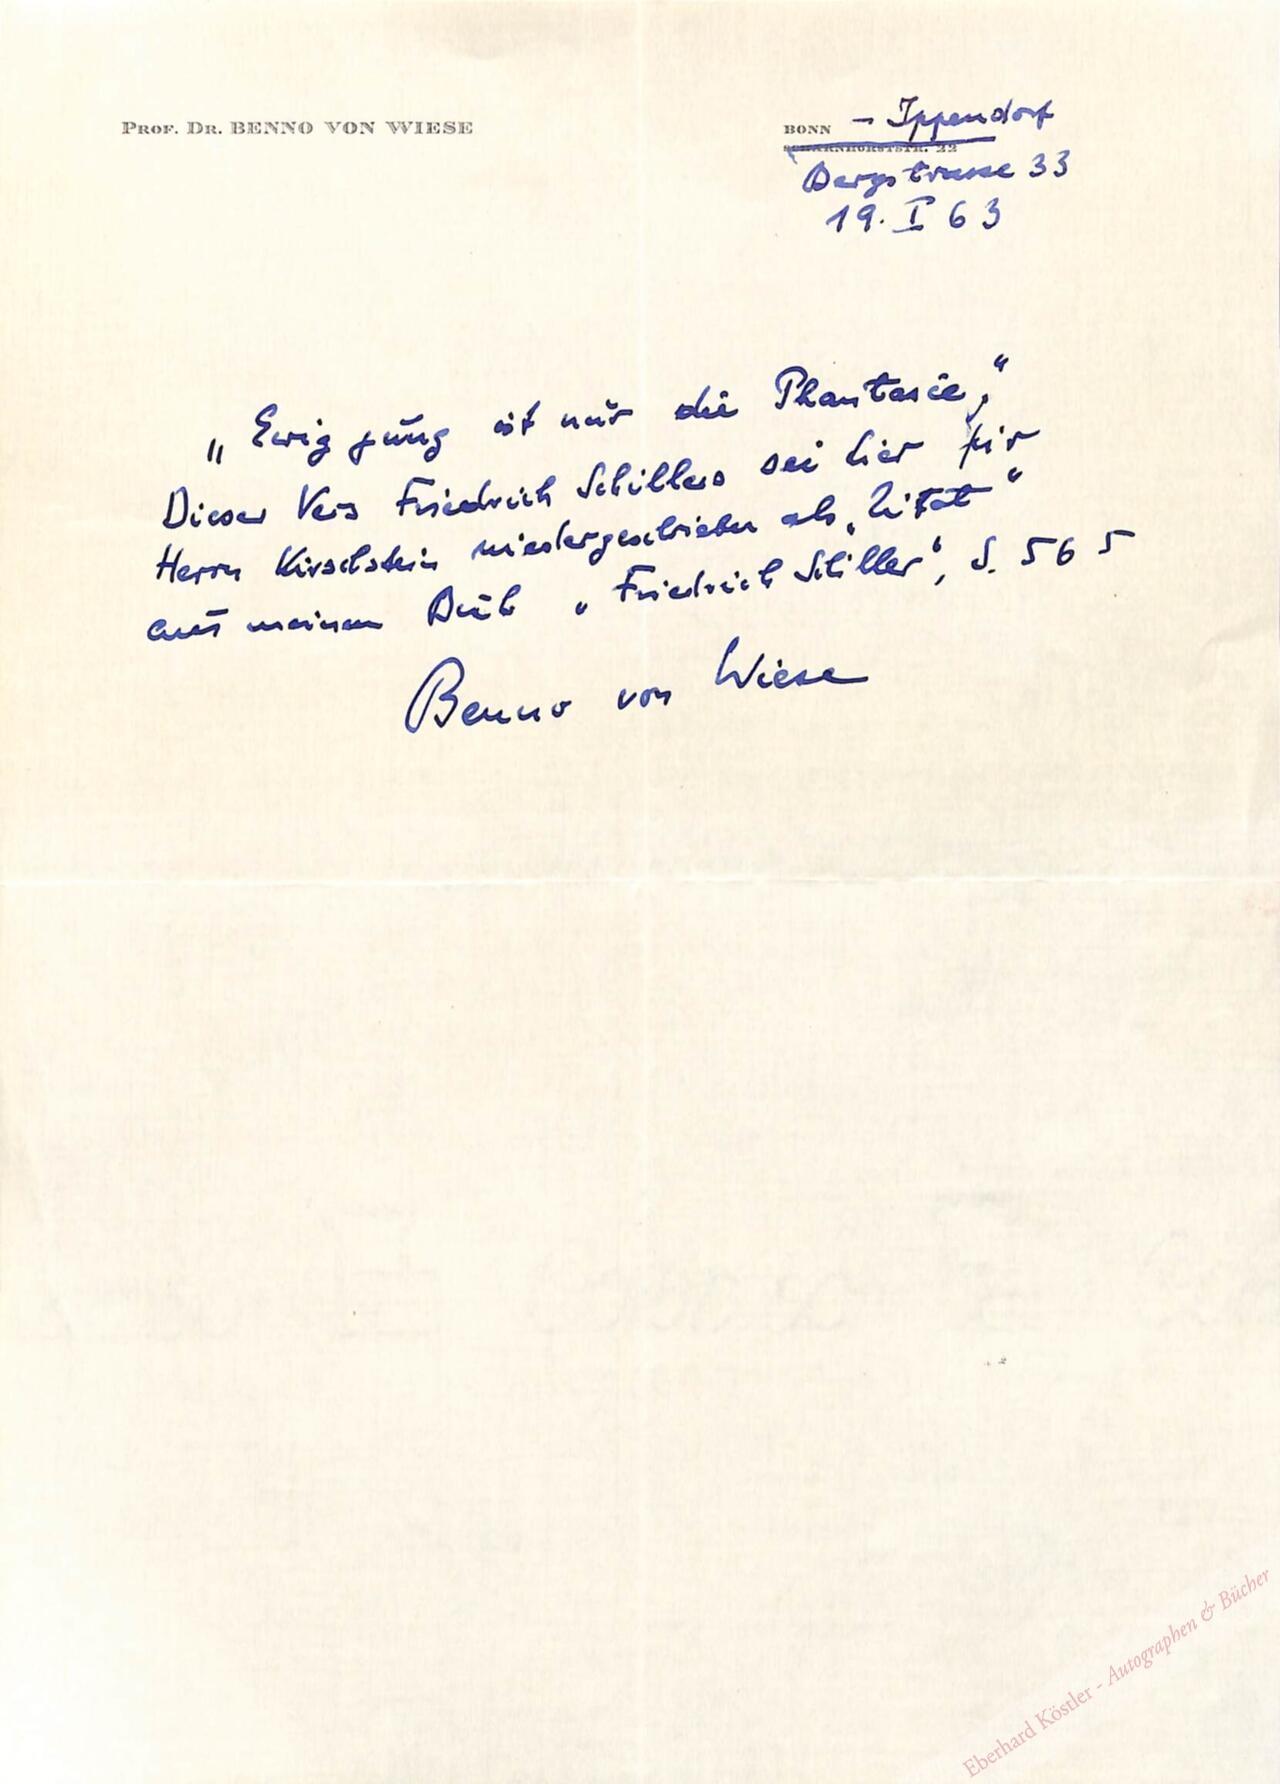 PROF. DR. BENNO VON WIESE
BONN - Ippendorf
SCHARNHORSTSTR. 22
Bergstrasse 33
19. I 63
„Ewig jung ist nur die Phantasie;“
Dieser Vers Friedrich Schillers sei hier für
Herrn Kirschstein niedergeschrieben als „Zitat“
aus meinem Buch „Friedrich Schiller“, S. 565
Benno von Wiese
Eberhard Köstler - Autographen & Bücher